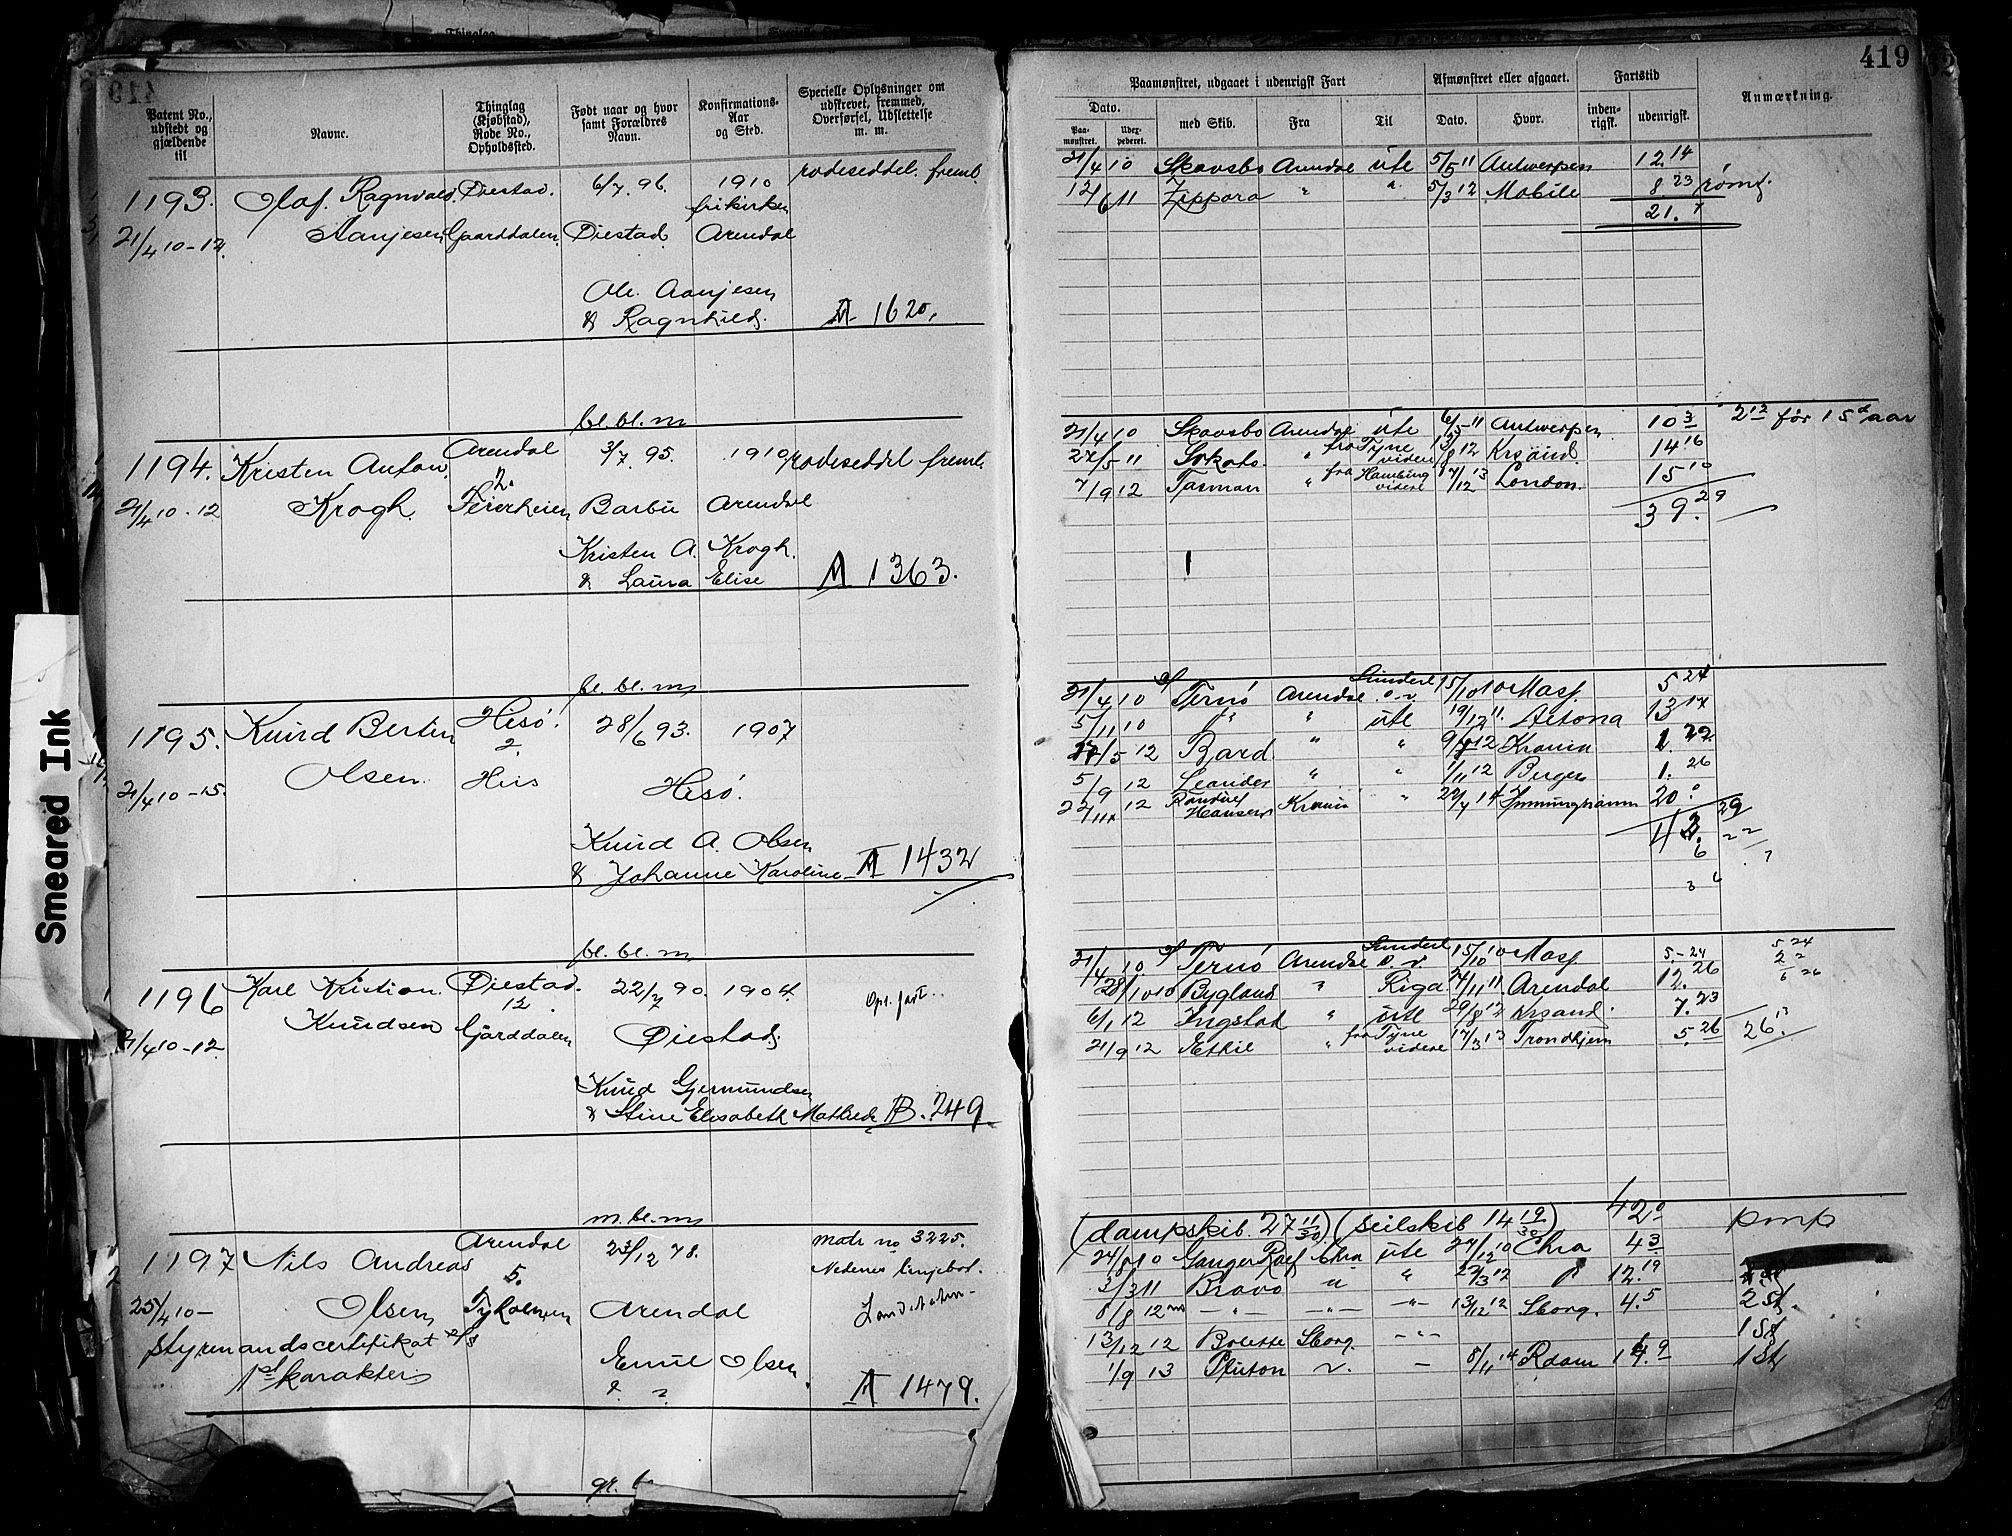 419
Patent No., udstedt og gjældende til
Navne.
Thinglag (Kjøbstad), Rode No., Opholdssted.
Født naar og hvor samt Forældres Navn.
Konfirmations-Aar og Sted.
Specielle Oplysninger om udskrevet, fremmed, Overførsel, Udslettelse m. m.
Paamønstret, udgaaet i udenrigsk Fart
Afmønstret eller afgaaet.
Fartstid
Anmærkning.
Dato.
Paa-mønstret.
med Skib.
Fra
Til
Dato.
Hvor.
inden-rigsk.
udenrigsk.
1193. Olaf Ragnvald Øiestad. 6/7 96. 1910 rodeseddel. fremb.
frikirken
21/4 10-12. Aanjesen Gaarddalen Øiestad Arendal
Ole Aanjesen
& Ragnhild. A 1620.
21/4 10 Skovsbo Arendal ute 5/5 11 Antwerpen 12 14
12/6 11 Zippora " " 5/3 12 Mobile 8 23 rømt.
21. 7
bl. bl. m
1194. Kristen Anton Arendal 3/7 95. 1910 rodeseddel fremb.
2.
21/4 10-12 Krogh. Barbu Arendal
Kristen A. Krogh.
& Laura Elise A 1363.
21/4 10 Skovsbo Arendal ute 6/5 11 Antwerpen 10 3 2 12 før 15 d aar
27/5 11 Sokoto. " fra Tyne videre 13/8 12 Krsand. 14 16
7/9 12 Tasman " fra Hamburg videre 17/12 13 London. 15 10
39. 29
bl. bl. m
1195. Knud Bertin Hisø. 28/6 93. 1907
2.
21/4 10-15. Olsen. His Hisø.
Knud A. Olsen
& Johanne Karoline A 1432
21/4 10 Ternø Arendal Sunderl o.v. 15/10 10 Mosj. 5 24
5/11 10 " " ute 19/12 11. Altona 13 14
27/5 12 Bard. " " 9/7 12 Kronin 1. 22
5/9 12 Leander " " 1/11 12 Bergen 1. 26
22/11 12 Randulf Hansen Kronin " 22/7 14 Immingham 20. 0
bl. bl. m
1196 Karl Kristian Øiestad. 22/7 90. 1904.
12.
21/4 10-12. Knudsen Gjärddalen Øiestad.
Knud Gjermundsen
& Stine Elisabeth Mathilde B. 249.
21/4 10. Ternø Arendal Sunderl o v. 15/10 10 Mosj. 5.- 24
28/10 10 Bygland " Riga 24/11 11. Arendal 12. 26
6/1 12 Ingstad " ute 29/8 12 Krsand. 7. 23
21/9 12 Ethil " fra Tyne videre 17/3 13 Trondhjem 5. 26 26. 13
m. bl. m
1197 Nils Andreas Arendal 23/12 78. matr no 3225.
5. Nedenes linjebat.
25/4 10- Olsen Tyholmen Arendal
styrmandscertifikat
1st karakter Emil Olsen
& ? A 1479.
(dampskib. 27 11/30) (seilskib 14 19/30) 42. 0 pmp
24/8 10 Ganger Rolf Chra ute 27/12 10 Chra 4 3.
3/3 11 Bravo " " 27/3 12 " 12. 19
8/8 12 - " - - " - - " - 13/12 12 Sborg. 4. 5 2 St.
13/12 12 Bolette Sborg. - " - 1 St
1/9 13 Pluton v. - 8/11 14 Rdam 14. 9 1 St
Smeared Ink